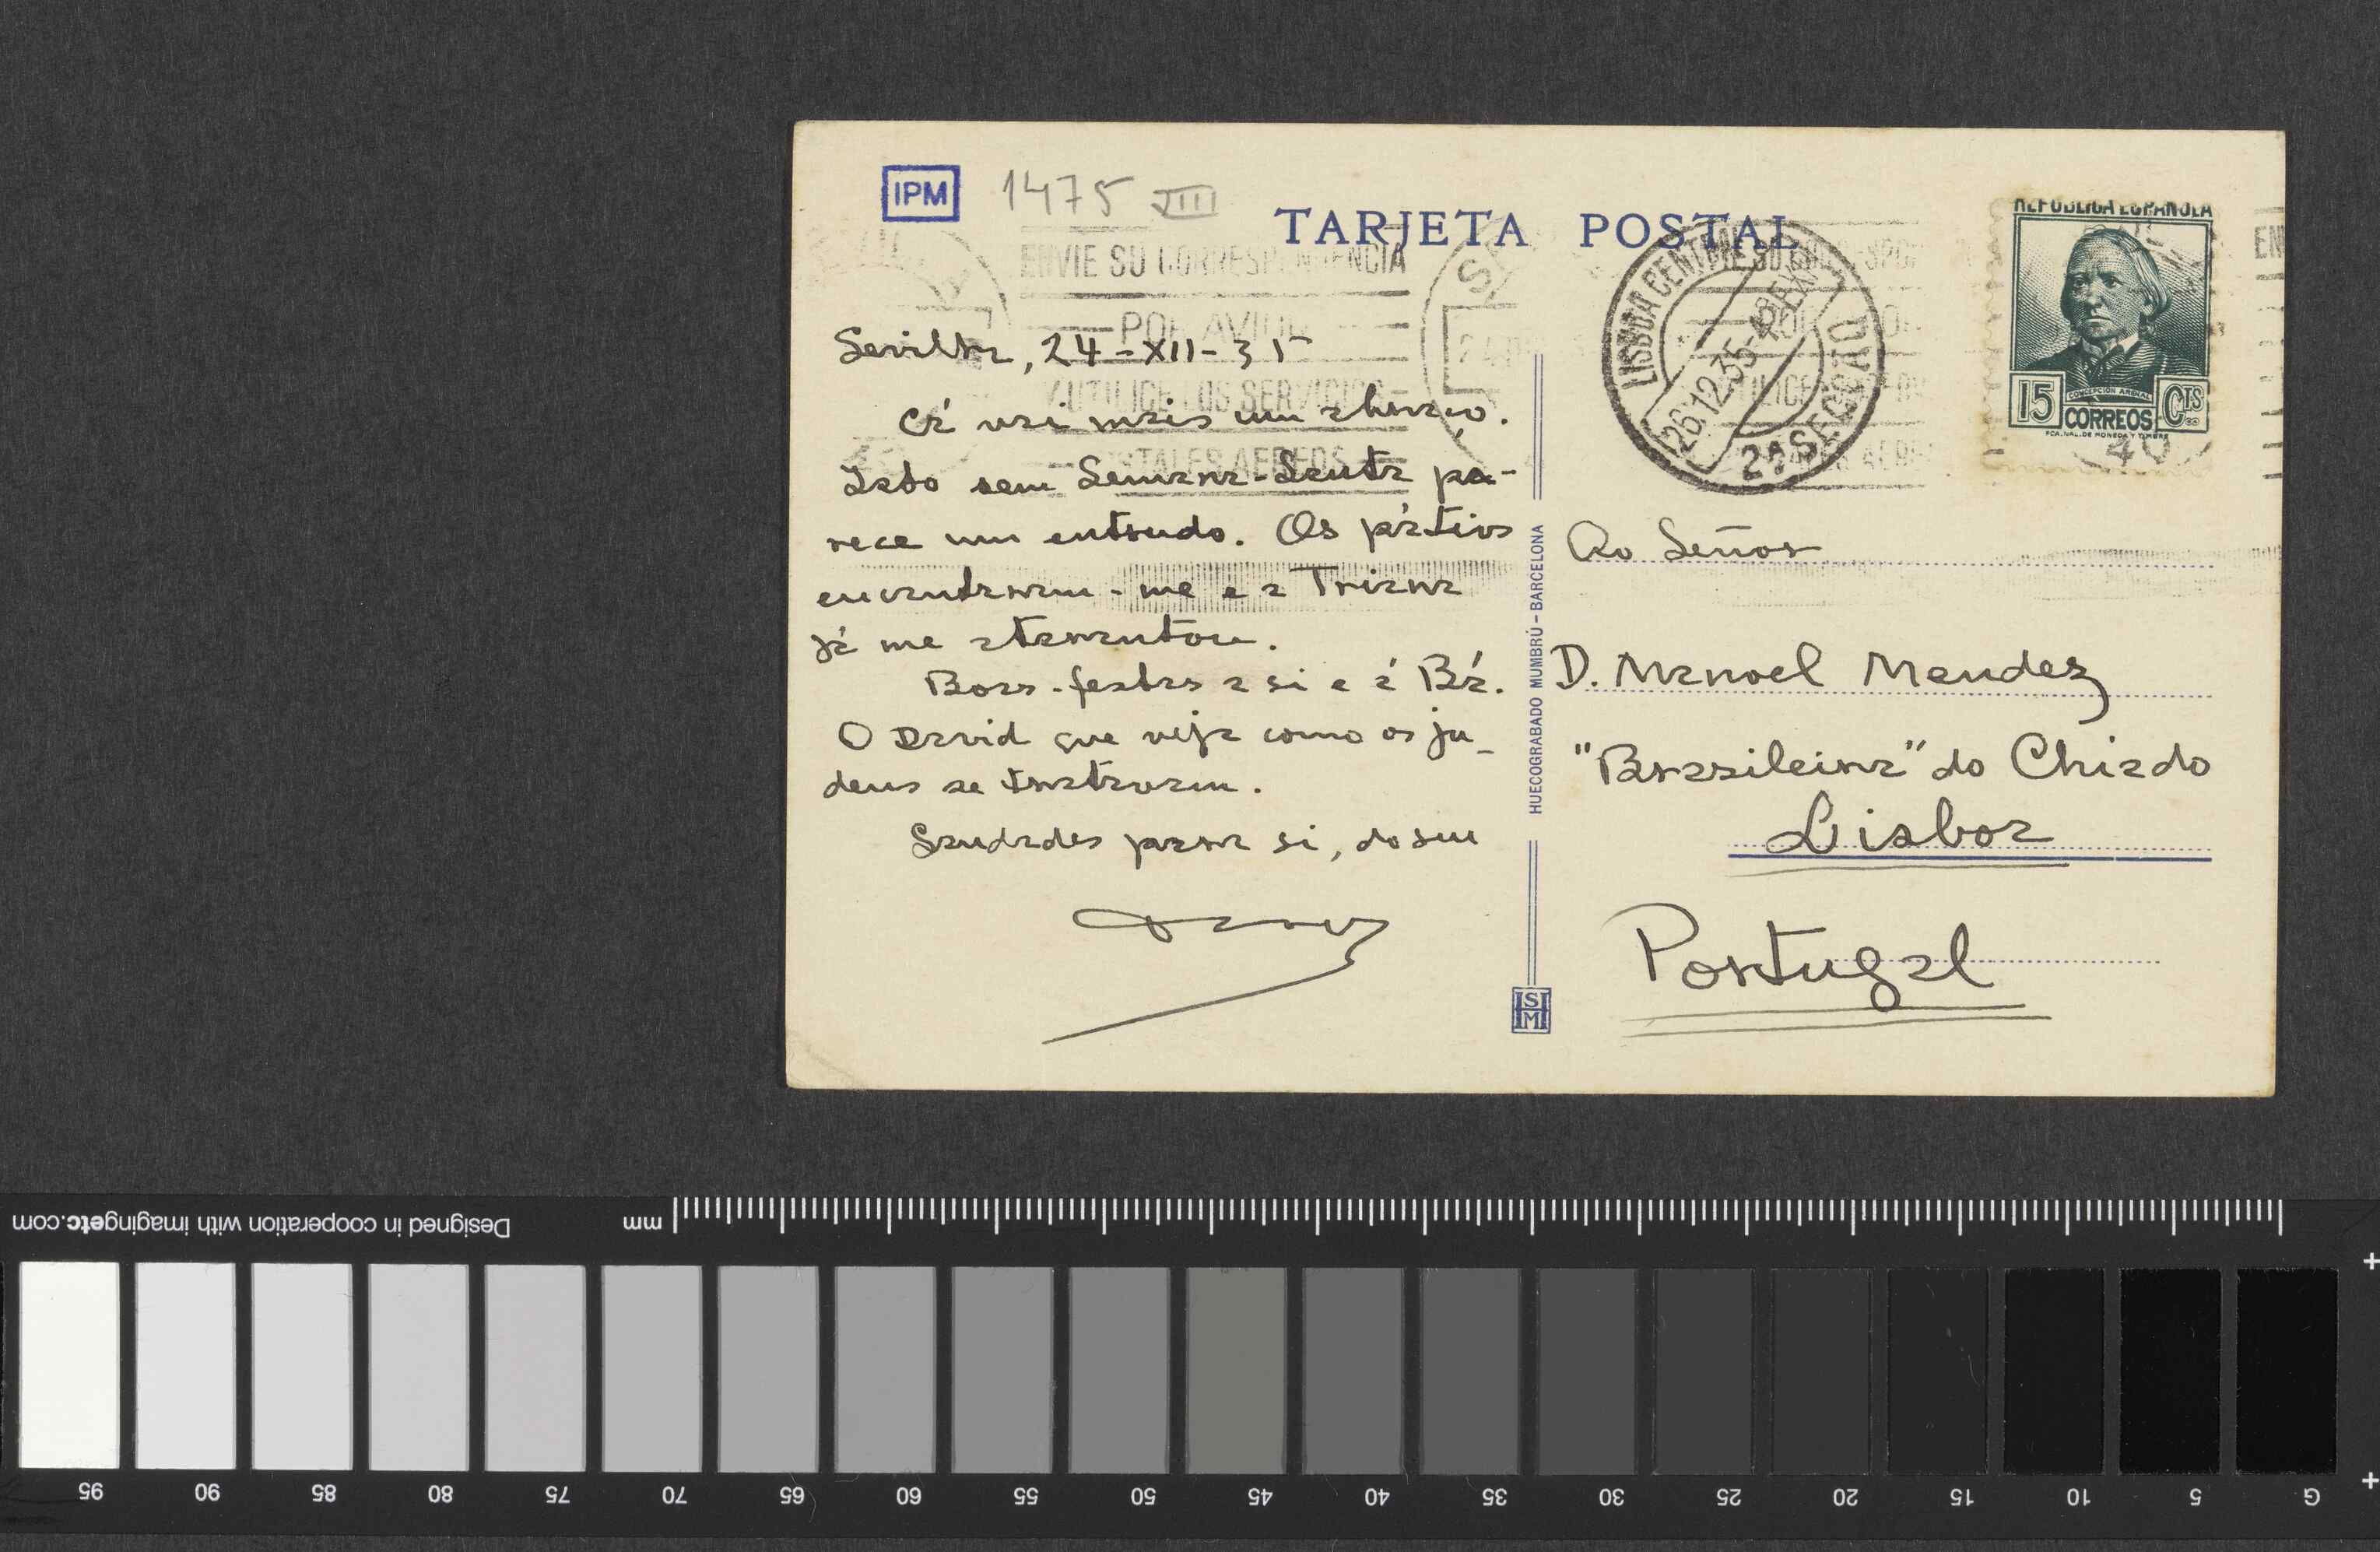 IPM 1475 VIII
TARJETA POSTAL
ENVIE SU CORRESPONDENCIA
POR AVION
UTILICE LOS SERVICIOS
POSTALES AEREOS
LISBOA CENTRAL
26.12.35-4
2ª SECÇÃO
REPUBLICA ESPAÑOLA
CONCEPCION ARENAL
15 CORREOS Cts
FCA. NAL. DE MONEDA Y TIMBRE
Sevilha, 24-XII-35
Cá vai mais um abraço.
Isto sem Semana-Santa pa-
rece um entrudo. Os pátios
encantaram-me e a Triana
já me atarantou.
Boas-festas a si e á Bá.
O David que veja como os ju-
deus se tratavam.
Saudades para si, do seu
HUECOGRABADO MUMBRÚ - BARCELONA
Ao Señor
D. Manoel Mendez
"Brasileira" do Chiado
Lisboa
Portugal
Designed in cooperation with imagingetc.com
mm
95 90 85 80 75 70 65 60 55 50 45 40 35 30 25 20 15 10 5 G